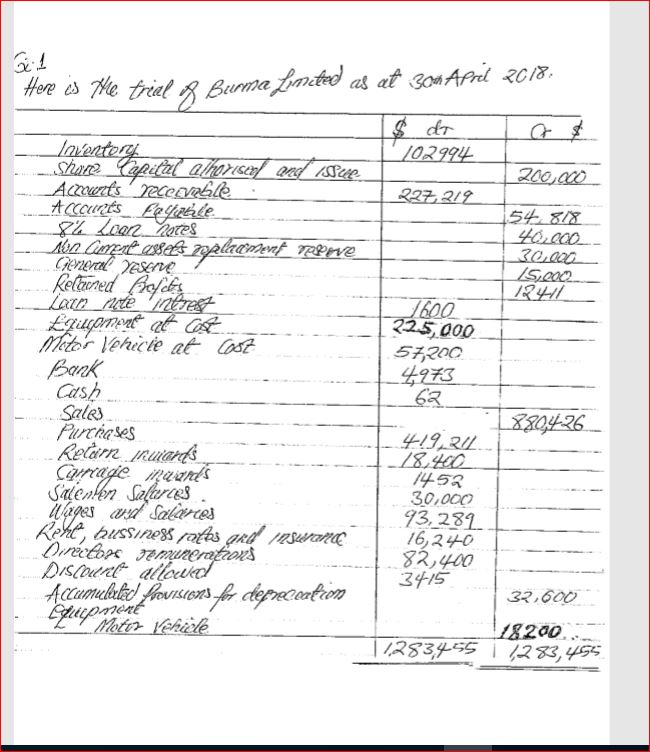 Here is the trial of Burma Limited as at 30th April 2018.
$ dr Cr $
Inventory 102994
Share Capital athorised and issue 200,000
Accounts receivable 227,219
Accounts Payable 54,818
8% Loan notes 40,000
Non Current assets replacement reserve 30,000
General reserve 15,000
Retained Profits 12411
Loan note interest 1600
Equipment at Cost 225,000
Motor Vehicle at Cost 57,200
Bank 4,973
Cash 62
Sales 880,426
Purchases 419,211
Return inwards 18,400
Carriage inwards 1452
Salemen Salaries 30,000
Wages and Salaries 93,289
Rent, bussiness rates and insurance 16,240
Directors remunerations 82,400
Discount allowed 3415
Accumulated Provisions for depreciation 32,600
Equipment
Motor Vehicle 18200
1283,455 1,283,455